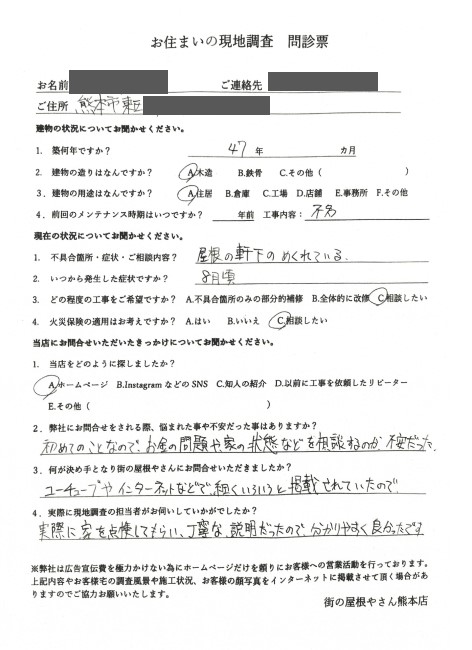 お住まいの現地調査　問診票
お名前　ご連絡先
ご住所　熊本市東区
建物の状況についてお聞かせください。
1.　築何年ですか？　47　年　カ月
2.　建物の造りはなんですか？　A.木造　B.鉄骨　C.その他（　）
3．建物の用途はなんですか？　A.住居　B.倉庫　C.工場　D.店舗　E.事務所　F.その他
4．前回のメンテナンス時期はいつですか？　年前　工事内容：　不名
現在の状況についてお聞かせください。
1.　不具合箇所・症状・ご相談内容？　屋根の軒下のめくれている.
2.　いつから発生した症状ですか？　8月頃
3.　どの程度の工事をご希望ですか？　A.不具合箇所のみの部分的補修　B.全体的に改修　C.相談したい
4.　火災保険の適用はお考えですか？　A.はい　B.いいえ　C.相談したい
当店にお問合せいただいたきっかけについてお聞かせください。
1.　当店をどのように探しましたか？
A.ホームページ　B.Instagram などの SNS　C.知人の紹介　D.以前に工事を依頼したリピーター
E.その他（　）
2．弊社にお問合せをされる際、悩まれた事や不安だった事はありますか？
初めてのことなので、お金の問題や家の状態などを相談するのが不安だった
3．何が決め手となり街の屋根やさんにお問合せいただきましたか？
ユーチューブやインターネットなどで細くいろいろと掲載されていたので
4．実際に現地調査の担当者がお伺いしていかがでしたか？
実際に家を点検してもらい、丁寧な説明だったので、分かりやすく良かったです
※弊社は広告宣伝費を極力かけない為にホームページだけを頼りにお客様への営業活動を行っております。
上記内容やお客様宅の調査風景や施工状況、お客様の顔写真をインターネットに掲載させて頂く場合があ
りますのでご協力お願いいたします。
街の屋根やさん熊本店